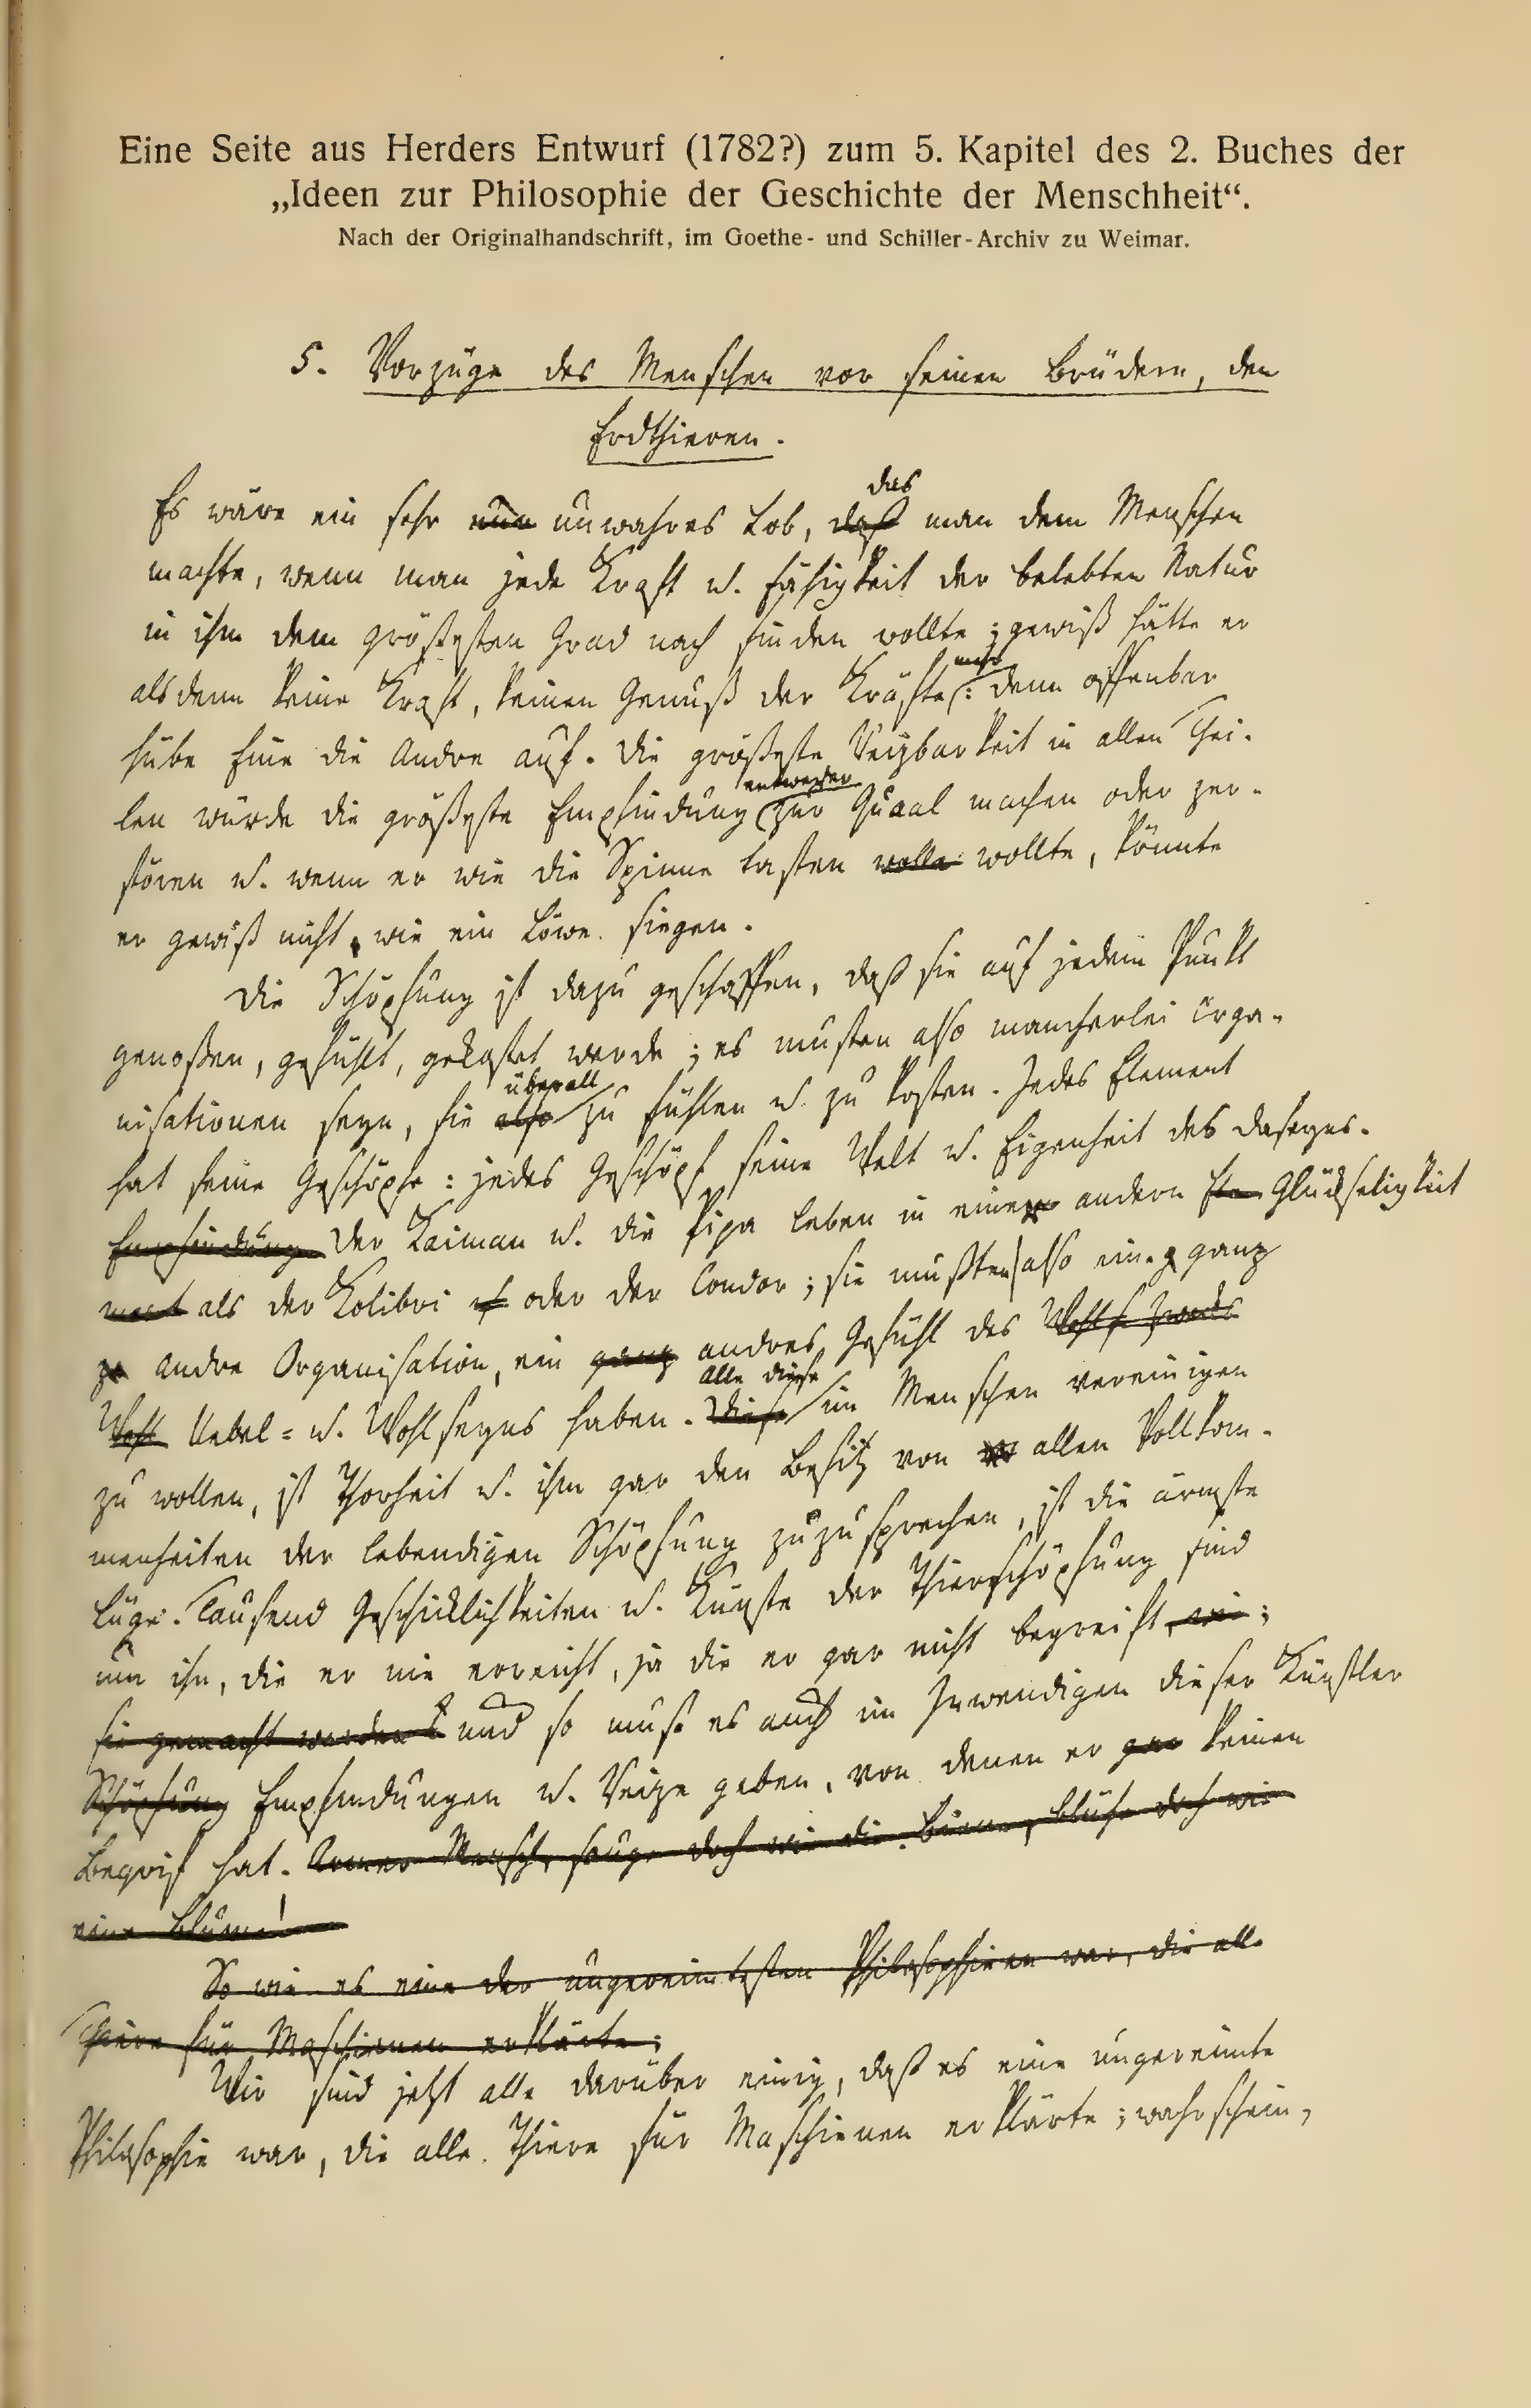 Eine Seite aus Herders Entwurf (1782?) zum 5. Kapitel des 2. Buches der
„Ideen zur Philosophie der Geschichte der Menschheit“.
Nach der Originalhandschrift, im Goethe- und Schiller-Archiv zu Weimar.
5. Vorzüge des Menschen vor seinen Brüdern, den
Erdthieren.
das
Es wäre ein sehr unwahres Lob, daß man dem Menschen
machte, wenn man jede Kraft u. Fähigkeit der belebten Natur
in ihm dem größesten Grad nach finden wollte; gewiß hätte er
mehr
alsdenn keine Kraft, keinen Genuß der Kräfte: denn offenbar
hübe Eine die Andre auf. Die größeste Reizbarkeit in allen Thei-
entweder
len würde die größeste Empfindung zur Quaal machen oder zer-
stören u. wenn er wie die Spinne tasten wolle wollte, könnte
er gewiß nicht, wie ein Löwe siegen.
Die Schöpfung ist dazu geschaffen, daß sie auf jedem Punkt
genoßen, gefühlt, gekostet werde; es musten also mancherlei Orga-
überall
nisationen seyn, sie also zu fühlen u. zu kosten. Jedes Element
hat seine Geschöpfe: jedes Geschöpf seine Welt u. Eigenheit des Daseyns.
Empfindung Der Kaiman u. die Pipa leben in einer andern Ele Glückseligkeit
ment als der Kolibri u. oder der Condor; sie mußten also eine ganz
andre Organisation, ein ganz andres Gefühl des Wohls
alle diese
Wohl Uebel- u. Wohlseyns haben. Diese im Menschen vereinigen
zu wollen, ist Thorheit u. ihm gar den Besitz von allen Vollkom-
menheiten der lebendigen Schöpfung zuzusprechen, ist die ärmste
Lüge. Tausend Geschicklichkeiten u. Künste der Thierschöpfung sind
um ihn, die er nie erreicht, ja die er gar nicht begreift, wie;
sie gemacht werden und so muß es auch im Inwendigen dieser Künstler
Schöpfung Empfindungen u. Reize geben, von denen er gar keinen
Begrif hat. Armer Mensch, sauge doch wie die Biene, blühe doch wie
eine Blume!
So wie es eine der ungereimtesten Philosophieen war, die alle
Thiere für Maschienen erklärte;
Wir sind jetzt alle darüber einig, daß es eine ungereimte
Philosophie war, die alle Thiere für Maschienen erklärte; wahrschein-